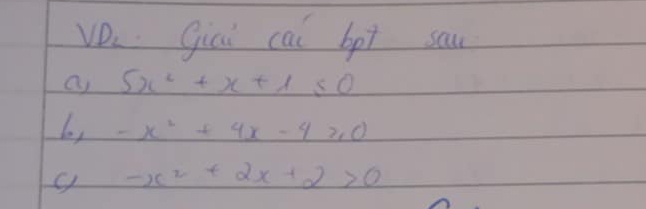 VD2. Giải các bpt sau
a, 5x² + x + 1 ≤ 0
b, -x² + 4x - 4 ≥ 0
c, -x² + 2x + 2 > 0